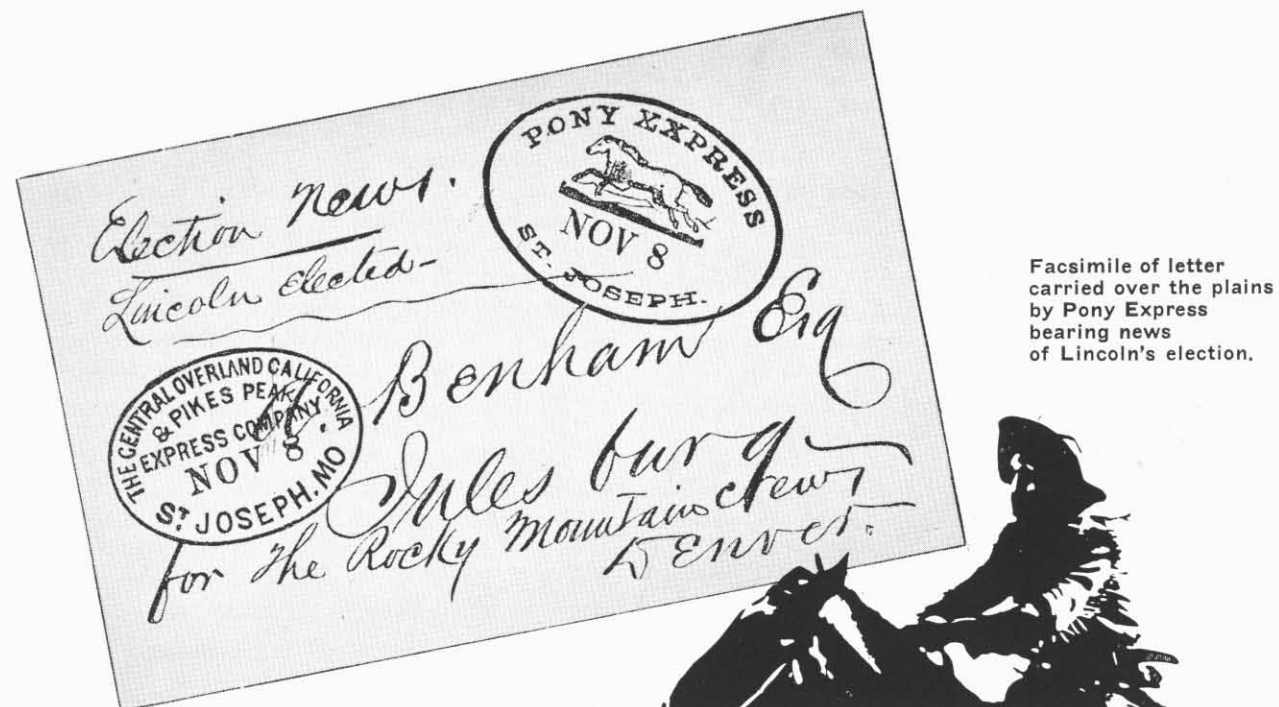 Election News.
Lincoln Elected-
PONY EXPRESS
NOV 8
ST. JOSEPH.
THE CENTRAL OVERLAND CALIFORNIA
& PIKES PEAK
EXPRESS COMPANY
NOV 8
ST JOSEPH. MO
A. Benham Esq
Jules burg
for the Rocky Mountain News
Denver.
Facsimile of letter
carried over the plains
by Pony Express
bearing news
of Lincoln's election.